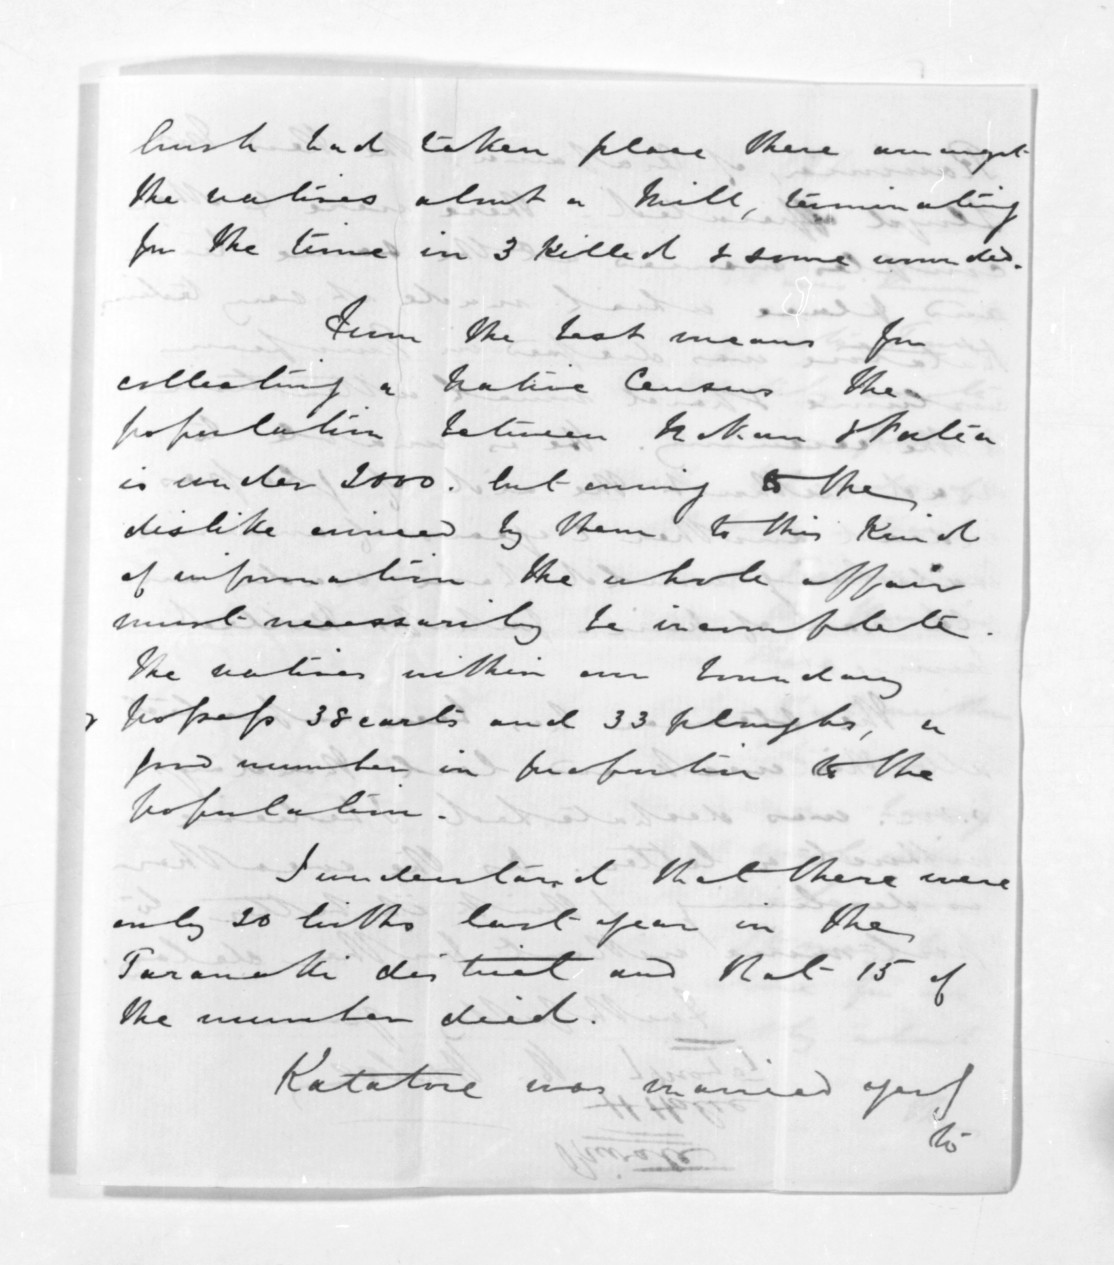 brush had taken place there amongst
the natives about a Mill, terminating
for the time in 3 Killed & some wounded.
From the best means for
collecting a Native Census the
population between Mokau & Patea
is under 2000. but owing to the
dislike evinced by them to this Kind
of information the whole affair
must necessarily be incomplete.
The natives within our boundary
possess 38 carts and 33 ploughs, a
good number in proportion to the
population.
I understand that there were
only 20 births last year in the
Taranaki district and that 15 of
the number died.
Katatore was married
to